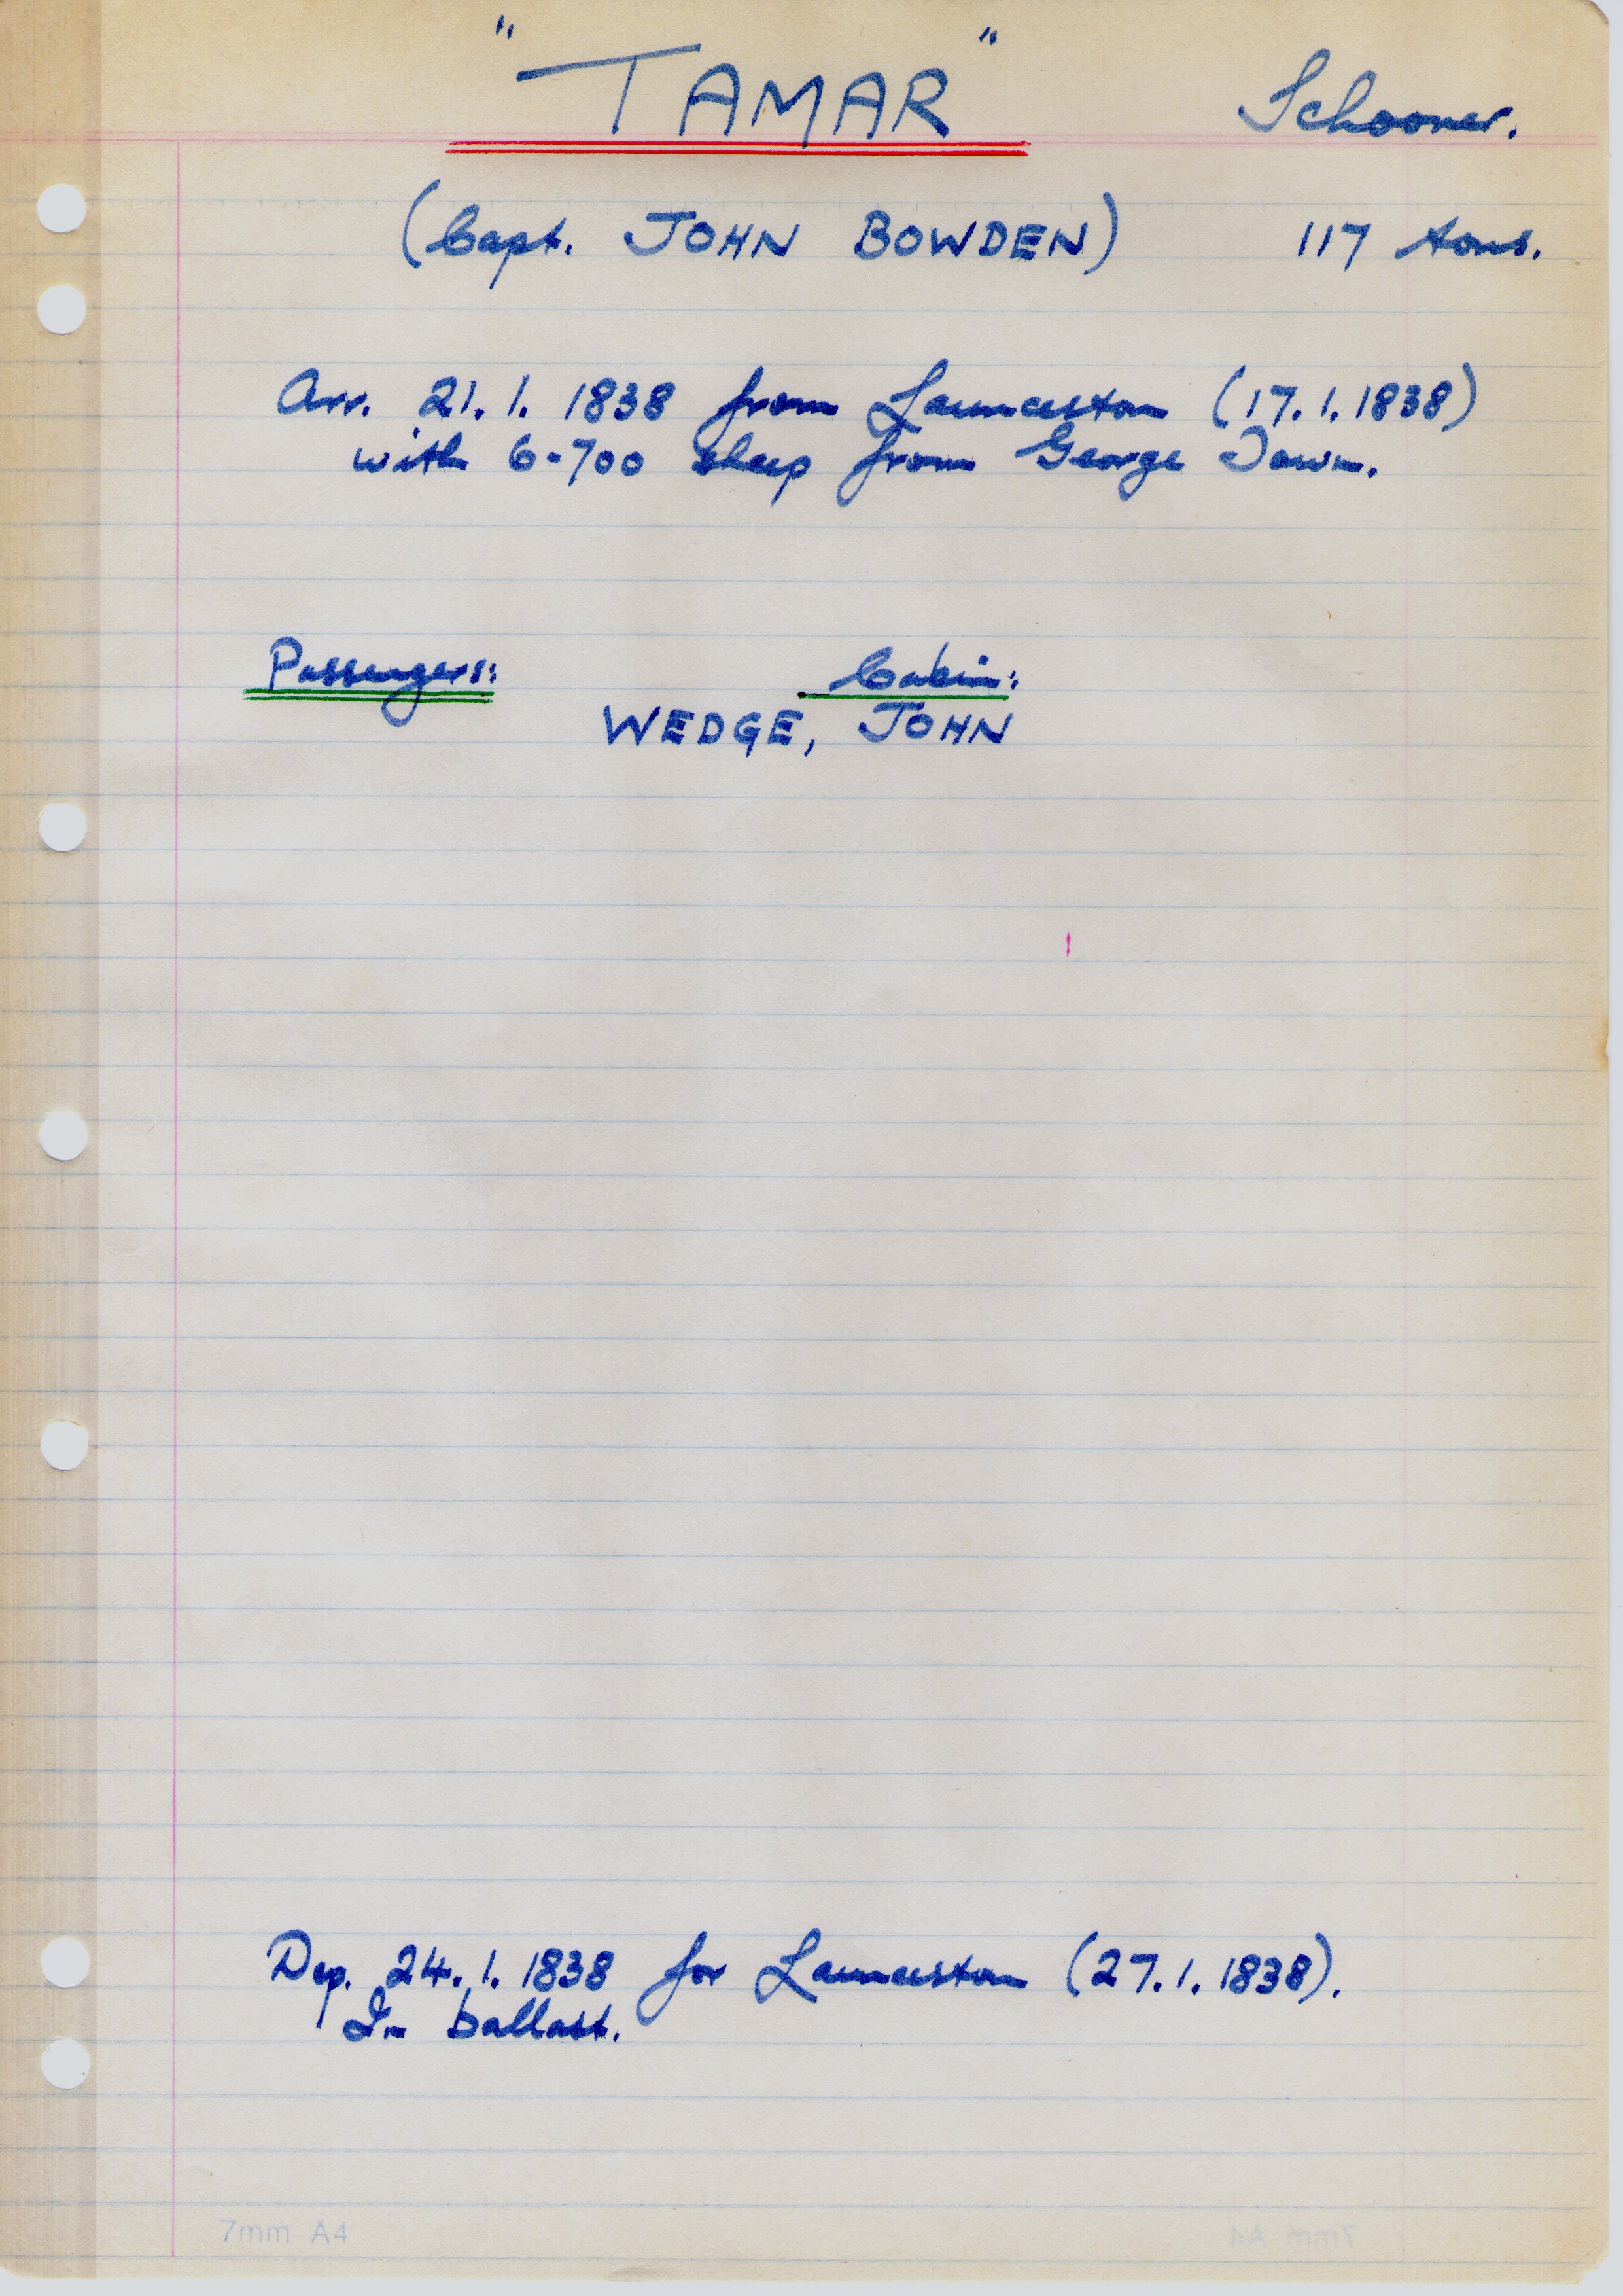 "TAMAR" Schooner.
(Capt. JOHN BOWDEN) 117 tons.
Arr. 21.1.1838 from Launceston (17.1.1838)
with 6-700 sheep from George Town.
Passengers: Cabin:
WEDGE, JOHN
Dep. 24.1.1838 for Launceston (27.1.1838).
In ballast.
7mm A4